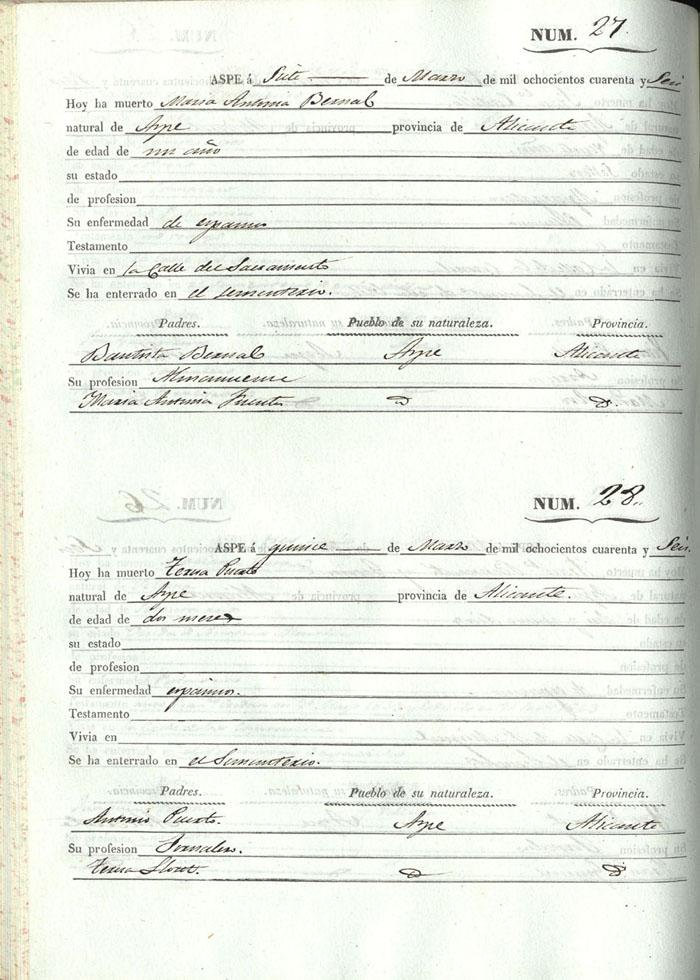 NUM. 27.
ASPE á Siete de Marzo de mil ochocientos cuarenta y Seis
Hoy ha muerto Maria Antonia Bernal
natural de Aspe provincia de Alicante
de edad de un año
su estado
de profesion
Su enfermedad de espamos
Testamento
Vivia en la Calle del Sacramento
Se ha enterrado en el sementerio.
Padres. Pueblo de su naturaleza. Provincia.
Bautista Bernal Aspe Alicante
Su profesion
Maria Antonia Fuentes D D.
NUM. 28.
ASPE á quince de Marzo de mil ochocientos cuarenta y Seis.
Hoy ha muerto Teresa Puerto
natural de Aspe provincia de Alicante.
de edad de dos meses
su estado
de profesion
Su enfermedad espasmos.
Testamento
Vivia en
Se ha enterrado en el Sementerio.
Padres. Pueblo de su naturaleza. Provincia.
Antonio Puerto. Aspe Alicante
Su profesion Jornalero.
Teresa Lloret. D D.